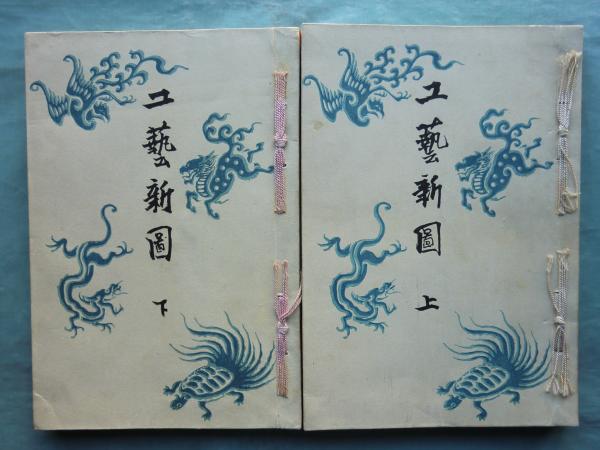 工藝新圖
上
工藝新圖
下